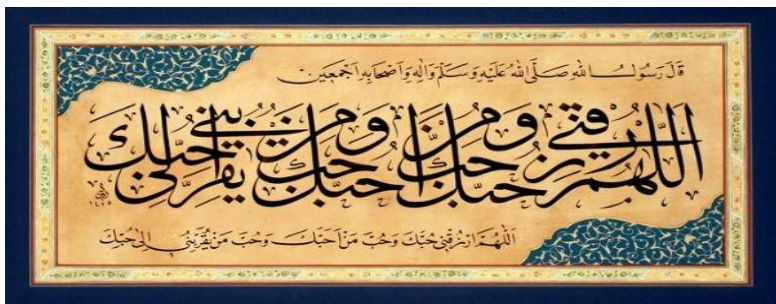 قَالَ رَسُولُ اللهِ صَلَّى اللهُ عَلَيْهِ وَسَلَّمَ وَاٰلِهِ وَاَصْحَابِهِ اَجْمَعِين
اللهم ارزقني حبك وحب من احبك وحب من يقربني الى حبك
اَللّٰهُمَّ ارْزُقْنِي حُبَّكَ وَحُبَّ مَنْ اَحَبَّكَ وَحُبَّ مَنْ يُقَرِّبُنِي اِلٰى حُبِّكَ